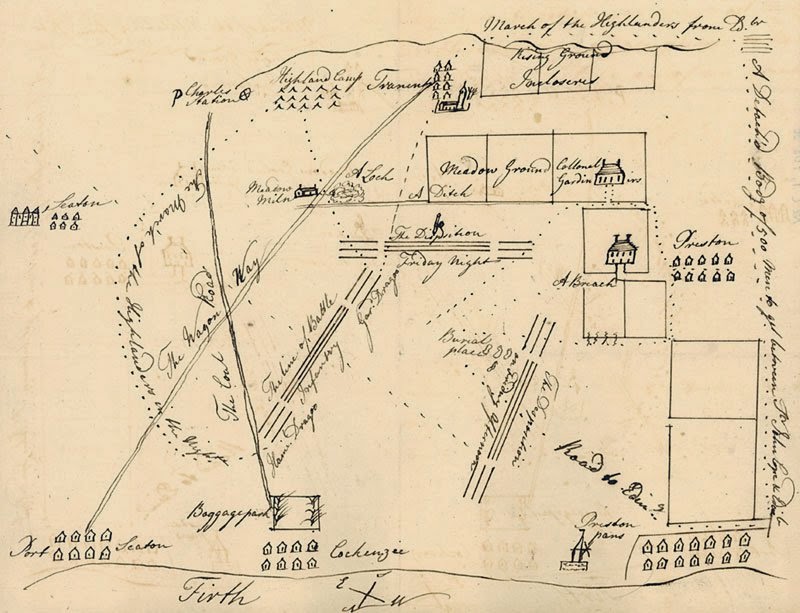 March of the Highlanders from Edr
Rising Ground
Inclosures
P Charles
Station
Highland Camp
Tranent
Meadow
Miln
A Loch
Meadow Ground
Collonel
Gardiners
A Ditch
Seaton
The Disposition
Friday Night
Preston
A Breach
The March of the Highlanders in the Night
The Wagon Way
The Cart Road
The Line of Battle
Infantry
Gar. Drago
Ham. Drago
Burial
place
on Friday Afternoon
The Disposition
Road to Edinr
A Detach'd Body of 500 Men to get between Sr John Cope &
Baggage park
Port Seaton
Cockenzee
Preston
pans
Firth
E
N
W